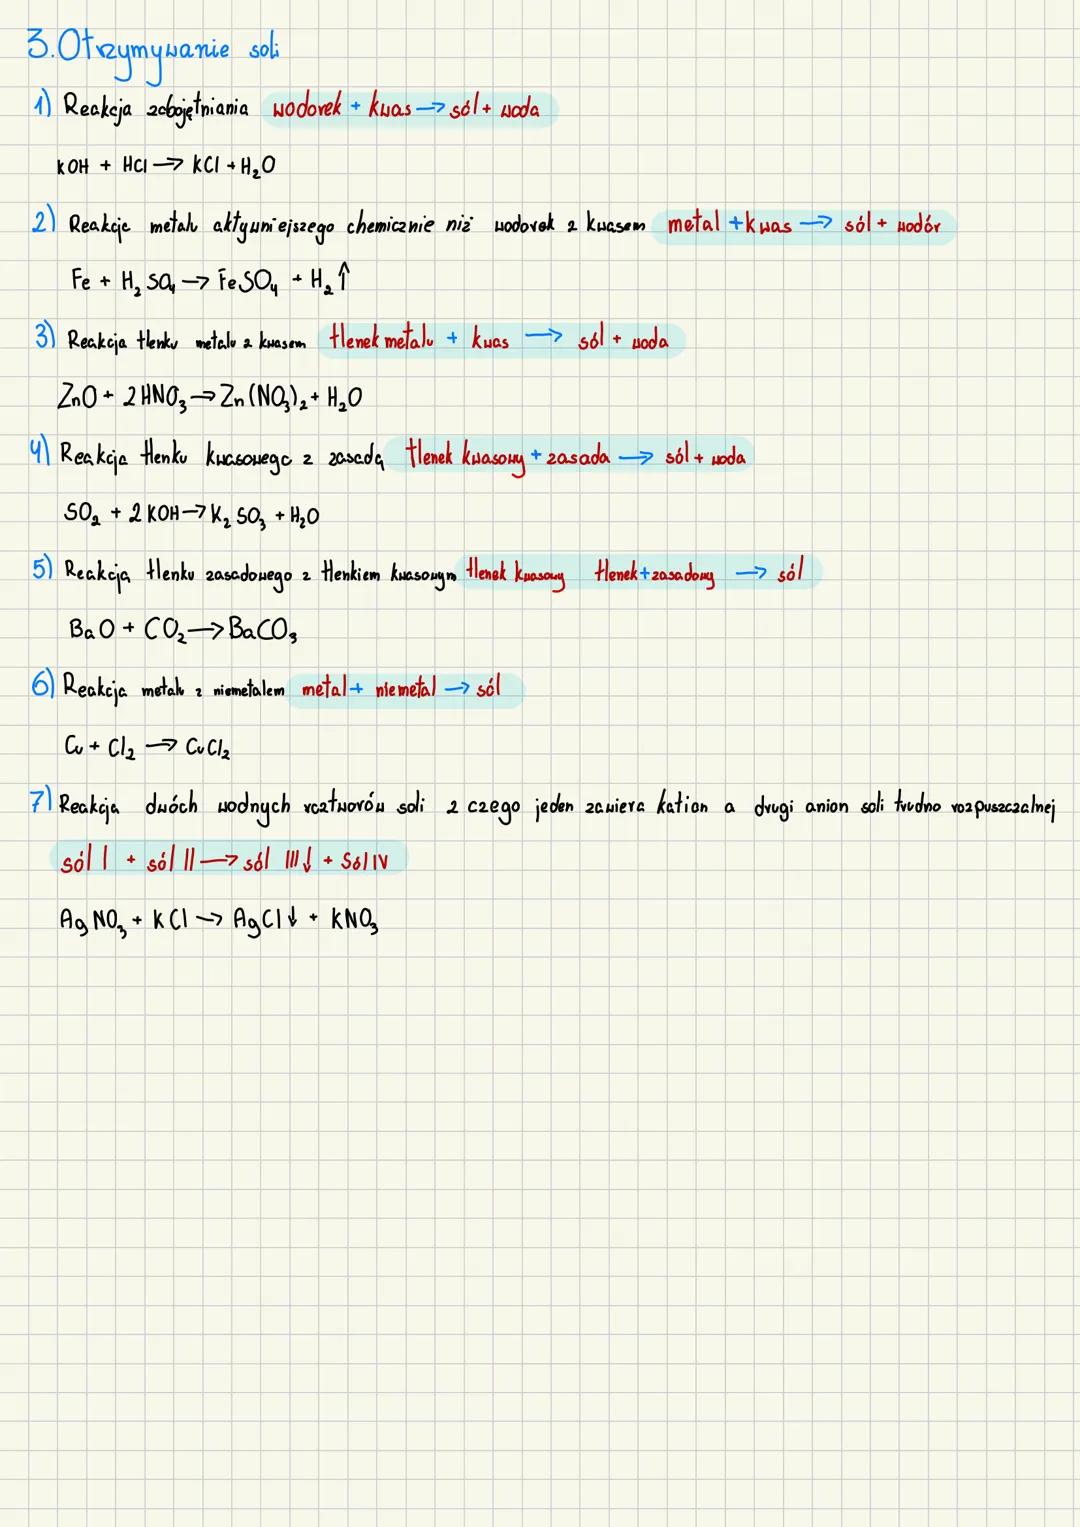 3. Otrzymywanie soli
1) Reakcja zobojętniania wodorek + kwas → sól + woda
KOH + HCl → KCl + H₂O
2) Reakcje metalu aktywniejszego chemicznie niż wodorek z kwasem metal + kwas → sól + wodór
Fe + H₂SO₄ → FeSO₄ + H₂↑
3) Reakcja tlenku metalu z kwasem tlenek metalu + kwas → sól + woda
ZnO + 2HNO₃ → Zn(NO₃)₂ + H₂O
4) Reakcja tlenku kwasowego z zasadą tlenek kwasowy + zasada → sól + woda
SO₂ + 2KOH → K₂SO₃ + H₂O
5) Reakcją tlenku zasadowego z tlenkiem kwasowym tlenek kwasowy tlenek + zasadowy → sól
BaO + CO₂ → BaCO₃
6) Reakcja metalu z niemetalem metal + niemetal → sól
Cu + Cl₂ → CuCl₂
7) Reakcja dwóch wodnych roztworów soli z czego jeden zawiera kation a drugi anion soli trudno rozpuszczalnej
sól I + sól II → sól III↓ + Sól IV
AgNO₃ + KCl → AgCl↓ + KNO₃